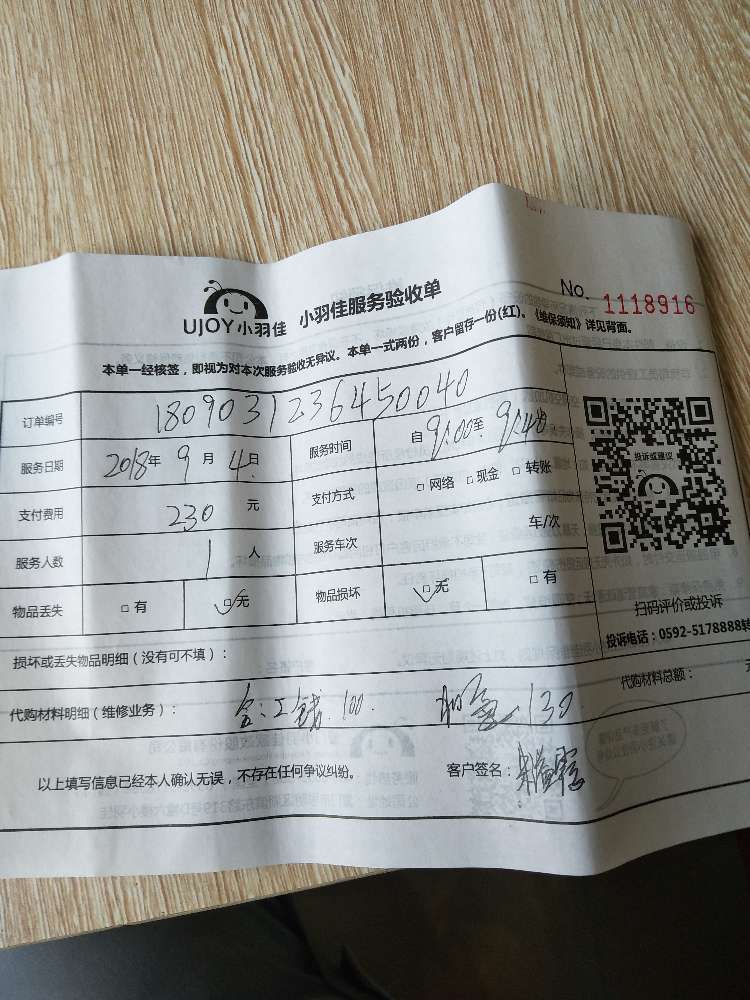 UJOY小羽佳 小羽佳服务验收单
No. 1118916
本单一经核签，即视为对本次服务验收无异议。本单一式两份，客户留存一份(红)。《维保须知》详见背面。
订单编号 1809031236450040
服务日期 2018年 9 月 4日 服务时间 自 9:00至
支付费用 230 元 支付方式 □网络 □现金 □转账
服务人数 1 人 服务车次 车/次
物品丢失 □有 □无 物品损坏 □无 □有
投诉或建议
扫码评价或投诉
投诉电话：0592-5178888转
损坏或丢失物品明细（没有可不填）：
代购材料明细（维修业务）： 工钱.100. 130. 代购材料总额：
以上填写信息已经本人确认无误，不存在任何争议纠纷。 客户签名：